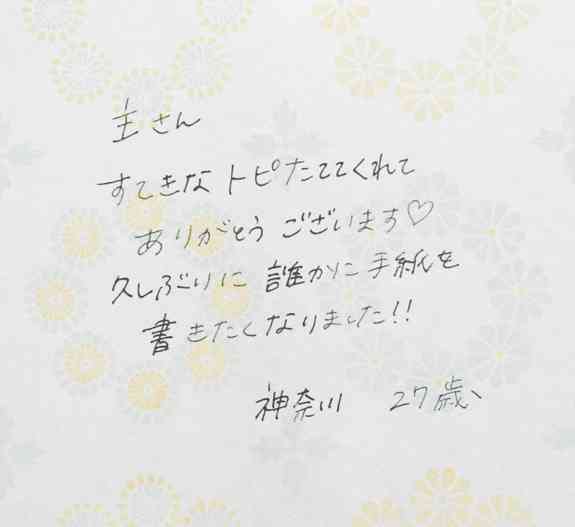 主さん
すてきな トピたててくれて
ありがとう ございます♡
久しぶりに 誰かに 手紙を
書きたくなりました!!
神奈川 27歳、